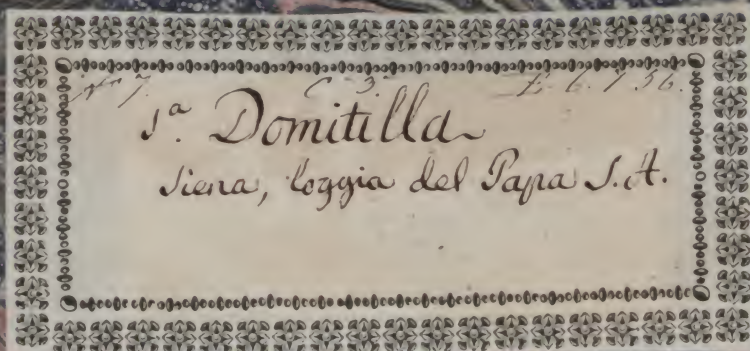 N° 7. C. 3. E. 6. 7 56.
S.ª Domitilla
Siena, loggia del Papa S.A.